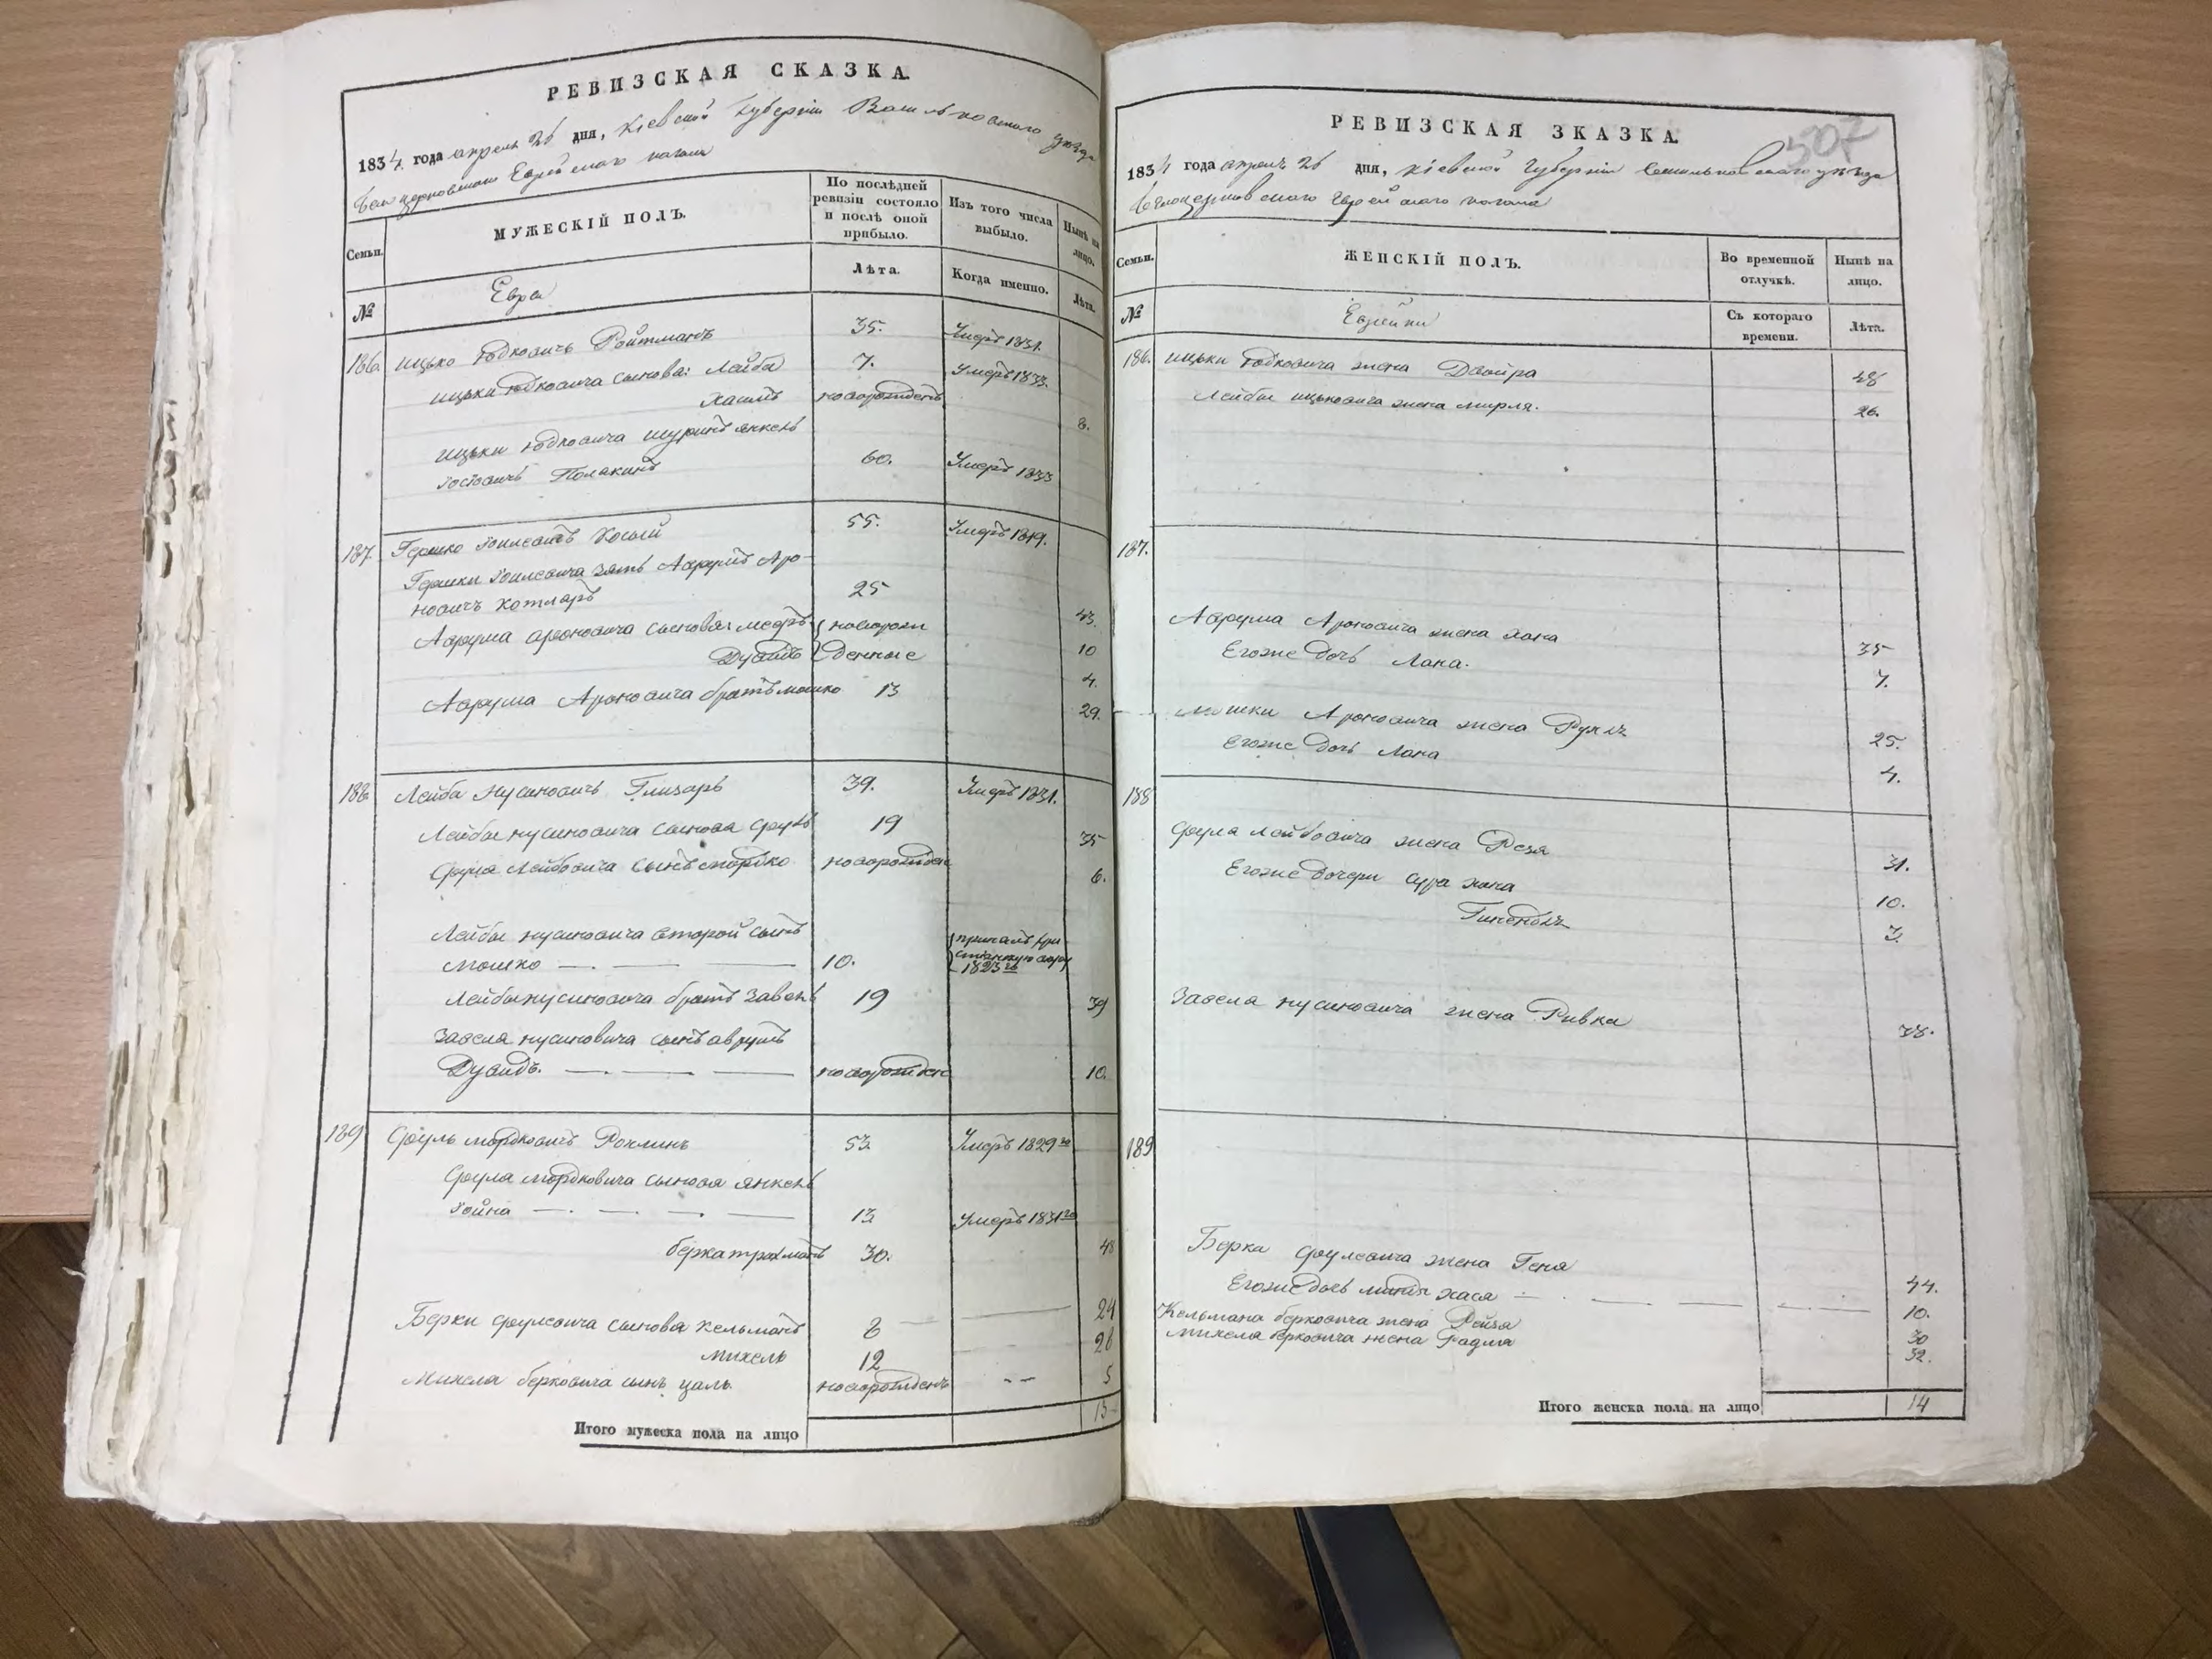 РЕВИЗСКАЯ СКАЗКА.
1834 года апреля 26 дня, Кіевской Губерніи Васильковского уезда
Белоцерковского Еврейского кагала
Семьи.
МУЖЕСКІЙ ПОЛЪ.
По послѣдней ревизіи состояло и послѣ оной прибыло.
Изъ того числа выбыло.
Нынѣ на лицо.
Лѣта.
Когда именно.
Лѣта.
№
Евреи
186. Ицько Юдковичъ Ройтманъ 35. Умеръ 1831.
Ицьки Юдковича сыновя: Лейба 7. Умеръ 1833.
Хаимъ новорожденъ 8.
Ицьки Юдковича шуринъ Янкель
Іосіовичъ Полякинъ 60. Умеръ 1833
187. Гершко Косый 55. Умеръ 1819.
Гершки зять Аврумъ Аро-
новичъ Котляръ 25 43.
Аврума Ароновича сыновя: Мееръ новорож 10
Дувидъ денные 4.
Аврума Ароновича братъ Мошко 13 29.
188 Лейба Нусиновичъ Глизаръ 39. Умеръ 1831.
Лейбы Нусиновича сыновя Сруль 19 35
Сруля Лейбовича сынъ Мордко новорожден 6.
Лейбы Нусиновича второй сынъ
Мошко 10. принялъ хри
стианскую веру
1823го
Лейбы Нусиновича братъ Завель 19 39
Завеля Нусиновича сынъ Аврумъ
Дувидъ. новорожден 10.
189 Сруль Мордковичъ Рохлинъ 53 Умеръ 1829го
Сруля Мордковича сыновя Янкель
Іойна 13 Умеръ 1831го
Берка 30. 48
Берки Срулевича сыновя Кельманъ 8 24
Михель 12 28
Михеля Берковича сынъ Цаль. новорожденъ 5
Итого мужеска пола на лицо 15
РЕВИЗСКАЯ ЗКАЗКА.
507
1834 года апреля 26 дня, Кіевской Губерніи Васильковского уезда
Белоцерковского Еврейского кагала
Семьи.
ЖЕНСКІЙ ПОЛЪ.
Во временной отлучкѣ.
Нынѣ на лицо.
№
Еврейки
Съ котораго времени.
Лѣта.
186. Ицьки Юдковича жена Двойра 48
Лейбы Ицьковича жена Мирля. 26.
187.
Аврума Ароновича жена Хана 35
Егоже дочь Лана. 7.
Мошки Ароновича жена Рухля 25.
Егоже дочь Лана 4.
188
Сруля Лейбовича жена Рейзя 31.
Егоже дочери Сура Хана 10.
3.
Завеля Нусиновича жена Ривка 38.
189
Берка Срулевича жена Геня 44.
Егоже дочь Хася 10.
Кельмана Берковича жена Рейзя 30
Михеля Берковича жена 32.
Итого женска пола на лицо 14